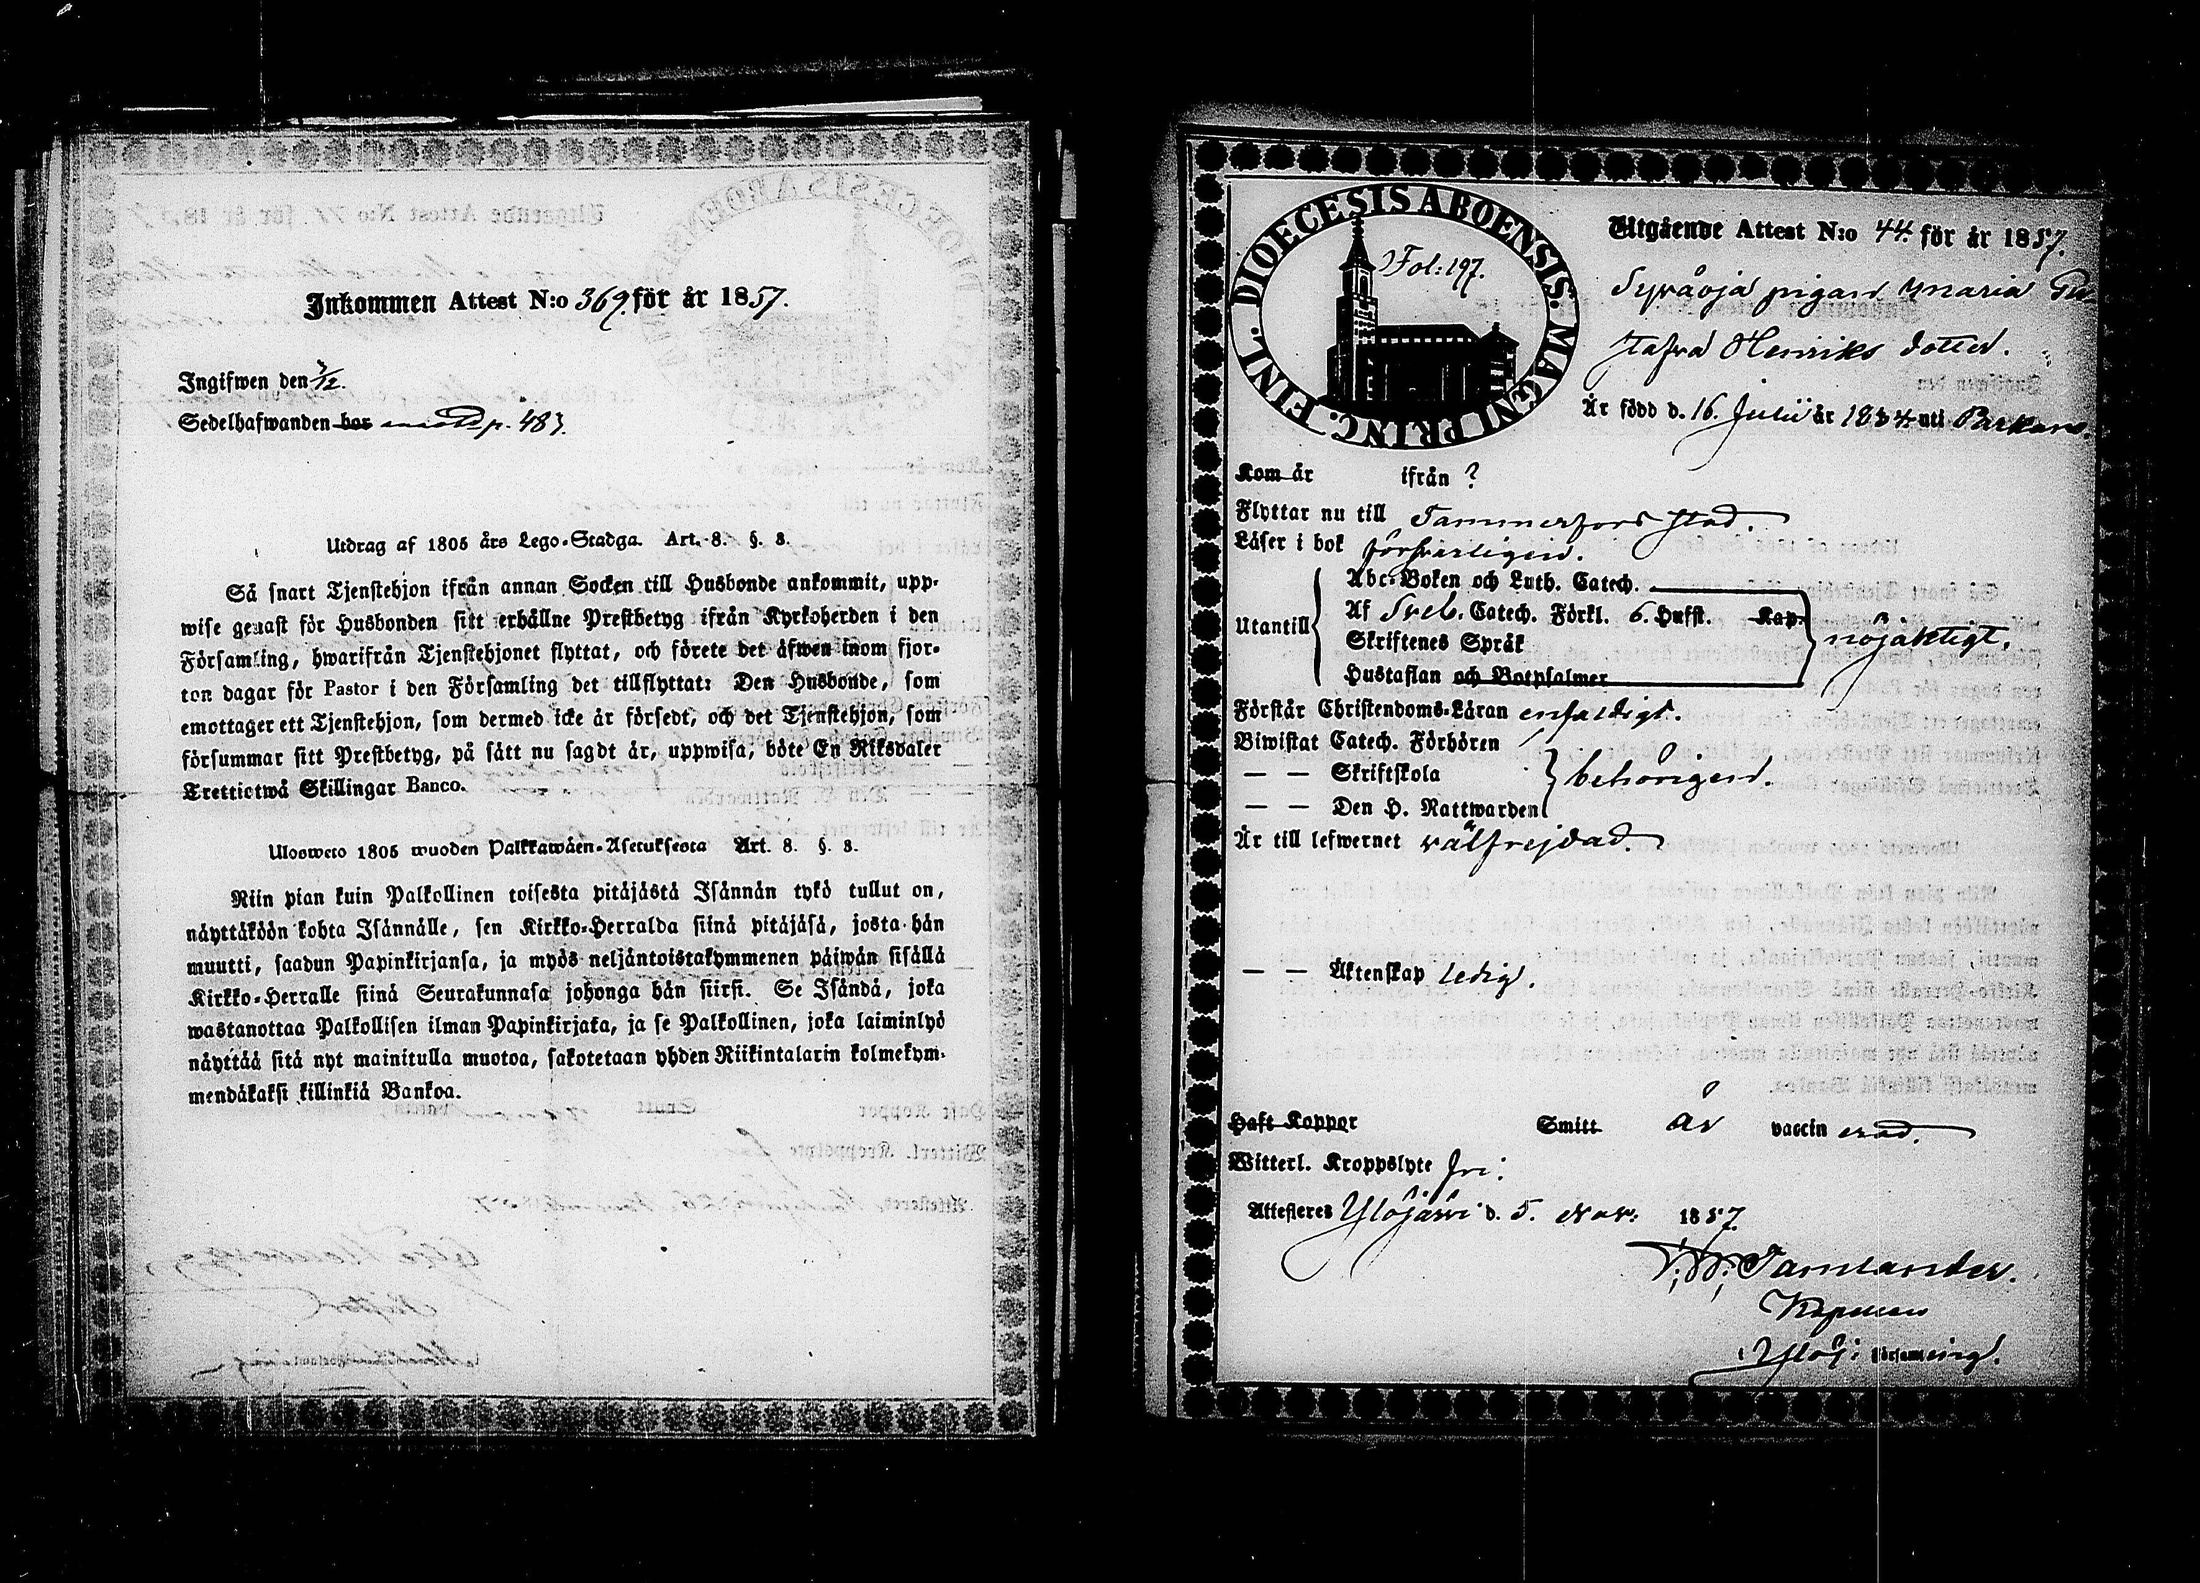 Inkommen Attest N:o 369. för år 1857.
Ingifwen den 7/12.
Sedelhafwanden bor p. 483.
Utdrag af 1805 års Lego-Stadga. Art. 8. §. 8.
Så snart Tjenstehjon ifrån annan Socken till Husbonde ankommit, upp-
wise genast för Husbonden sitt erhållne Prestbetyg ifrån Kyrkoherden i den
Församling, hwarifrån Tjenstehjonet flyttat, och förete det äfwen inom fjor-
ton dagar för Pastor i den Församling det tillflyttat: Den Husbonde, som
emottager ett Tjenstehjon, som dermed icke är försedt, och det Tjenstehjon, som
försummar sitt Prestbetyg, på sätt nu sagdt är, uppwisa, böte En Riksdaler
Trettiotwå Skillingar Banco.
Ulosweto 1805 wuoden Palkkawäen-Asetuksesta Art. 8. §. 8.
Niin pian kuin Palkollinen toisesta pitäjästä Isännän tykö tullut on,
näyttäköön kohta Isännälle, sen Kirkko-Herralda siinä pitäjäsä, josta hän
muutti, saadun Papinkirjansa, ja myös neljäntoistakymmenen päiwän sisällä
Kirkko-Herralle siinä Seurakunnasa johonga hän siirsi. Se Isändä, joka
wastanottaa Palkollisen ilman Papinkirjata, ja se Palkollinen, joka laiminlyö
näyttää sitä nyt mainitulla muotoa, sakotetaan yhden Riikintalarin kolmekym-
mendäkaksi killinkiä Bankoa.
DIOECESIS ABOENSIS. MAGNI PRINC. FINL.
Fol: 197.
Utgående Attest N:o 44. för år 1857.
pigan Maria Gu-
stafva Henriks dotter.
Är född d. 16. Julii år 1834 uti Parkano.
Kom år ifrån ?
Flyttar nu till Tammerfors stad.
Läser i bok försvarligen.
Utantill
Abc-Boken och Luth. Catech.
Af Sveb. Catech. Förkl. 6. Hufst. Kap.
Skriftenes Språk
Hustaflan och Botpsalmer
nöjaktigt.
Förstår Christendoms-Läran enfaldigt.
Biwistat Catech. Förhören
— — Skriftskola
— — Den H. Nattwarden
behörigen.
Är till lefwernet välfrejdad.
— — Äktenskap ledig.
Haft Koppor Smitt är vaccin erad.
Witterl. Kroppslyte fri.
Attesteres Ylöjärvi d. 5. Nov: 1857.
Tamlander.
Kapellan
i Ylöj: församling.